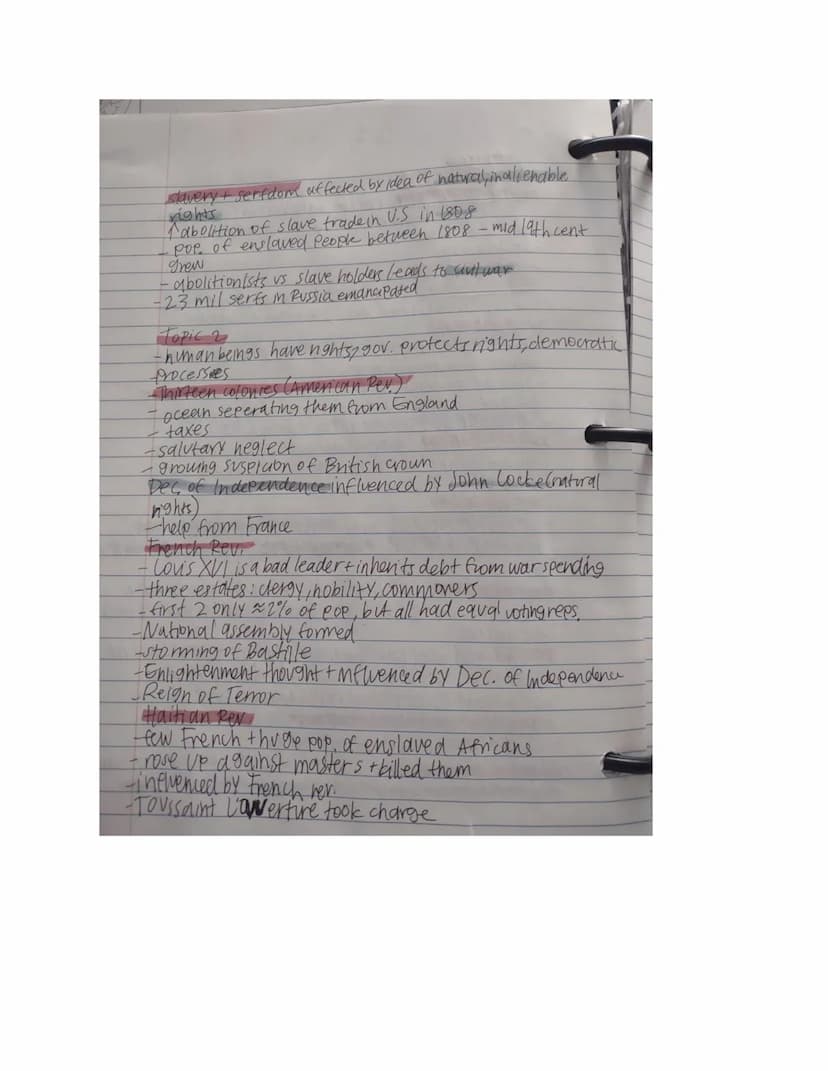 slavery + serfdom affected by idea of natural, inalienable
rights
↑ abolition of slave trade in U.S in 1808
- pop. of enslaved people between 1808 - mid 19th cent
grew
- abolitionists vs slave holders leads to civil war
- 23 mil serfs in Russia emancipated
Topic 2
- human beings have rights, gov. protects rights, democratic
processes
- Thirteen colonies (American Rev.)
- ocean seperating them from England
- taxes
- salutary neglect
- growing of British crown
Dec. of Independence influenced by John Locke (natural
rights)
- help from France
French Rev.
- Louis XVI is a bad leader + inherits debt from war spending
- three estates: clergy, nobility, commoners
- first 2 only ≈ 2% of pop, but all had equal voting reps.
- National assembly formed
- storming of Bastille
- Enlightenment thought + influenced by Dec. of Independence
- Reign of Terror
Haitian Rev
- few French + huge pop. of enslaved Africans
- rose up against masters + killed them
- influenced by French rev.
- Toussaint L'ouverture took charge